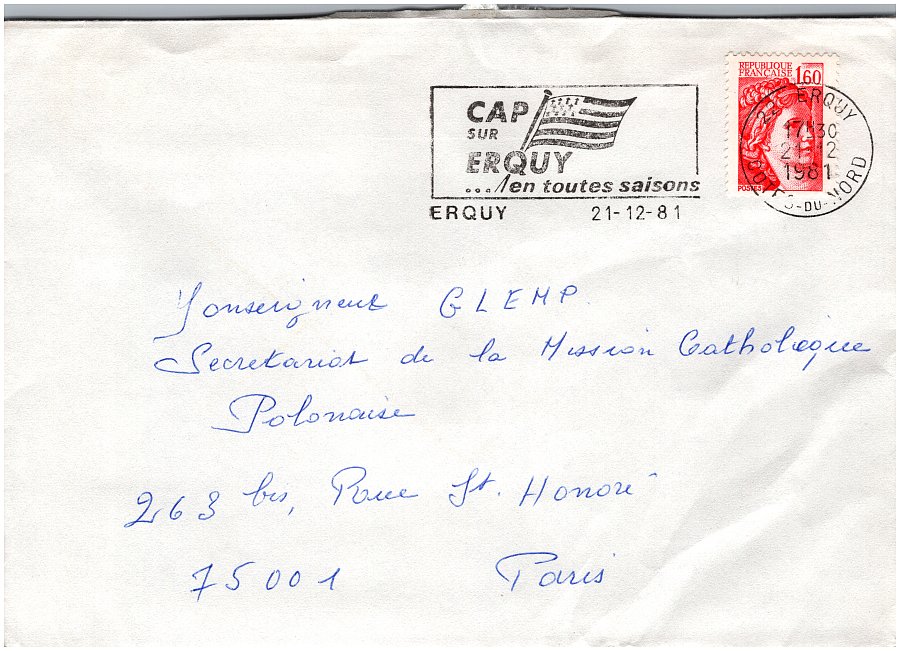 CAP
SUR
ERQUY
... en toutes saisons
ERQUY 21-12-81
REPUBLIQUE
FRANÇAISE 1,60
POSTES
22 ERQUY
17H30
21-12
1981
COTES-DU-NORD
Monseigneur GLEMP.
Secretariat de la Mission Catholique
Polonaise
263 bis, Rue St. Honoré
75001 Paris